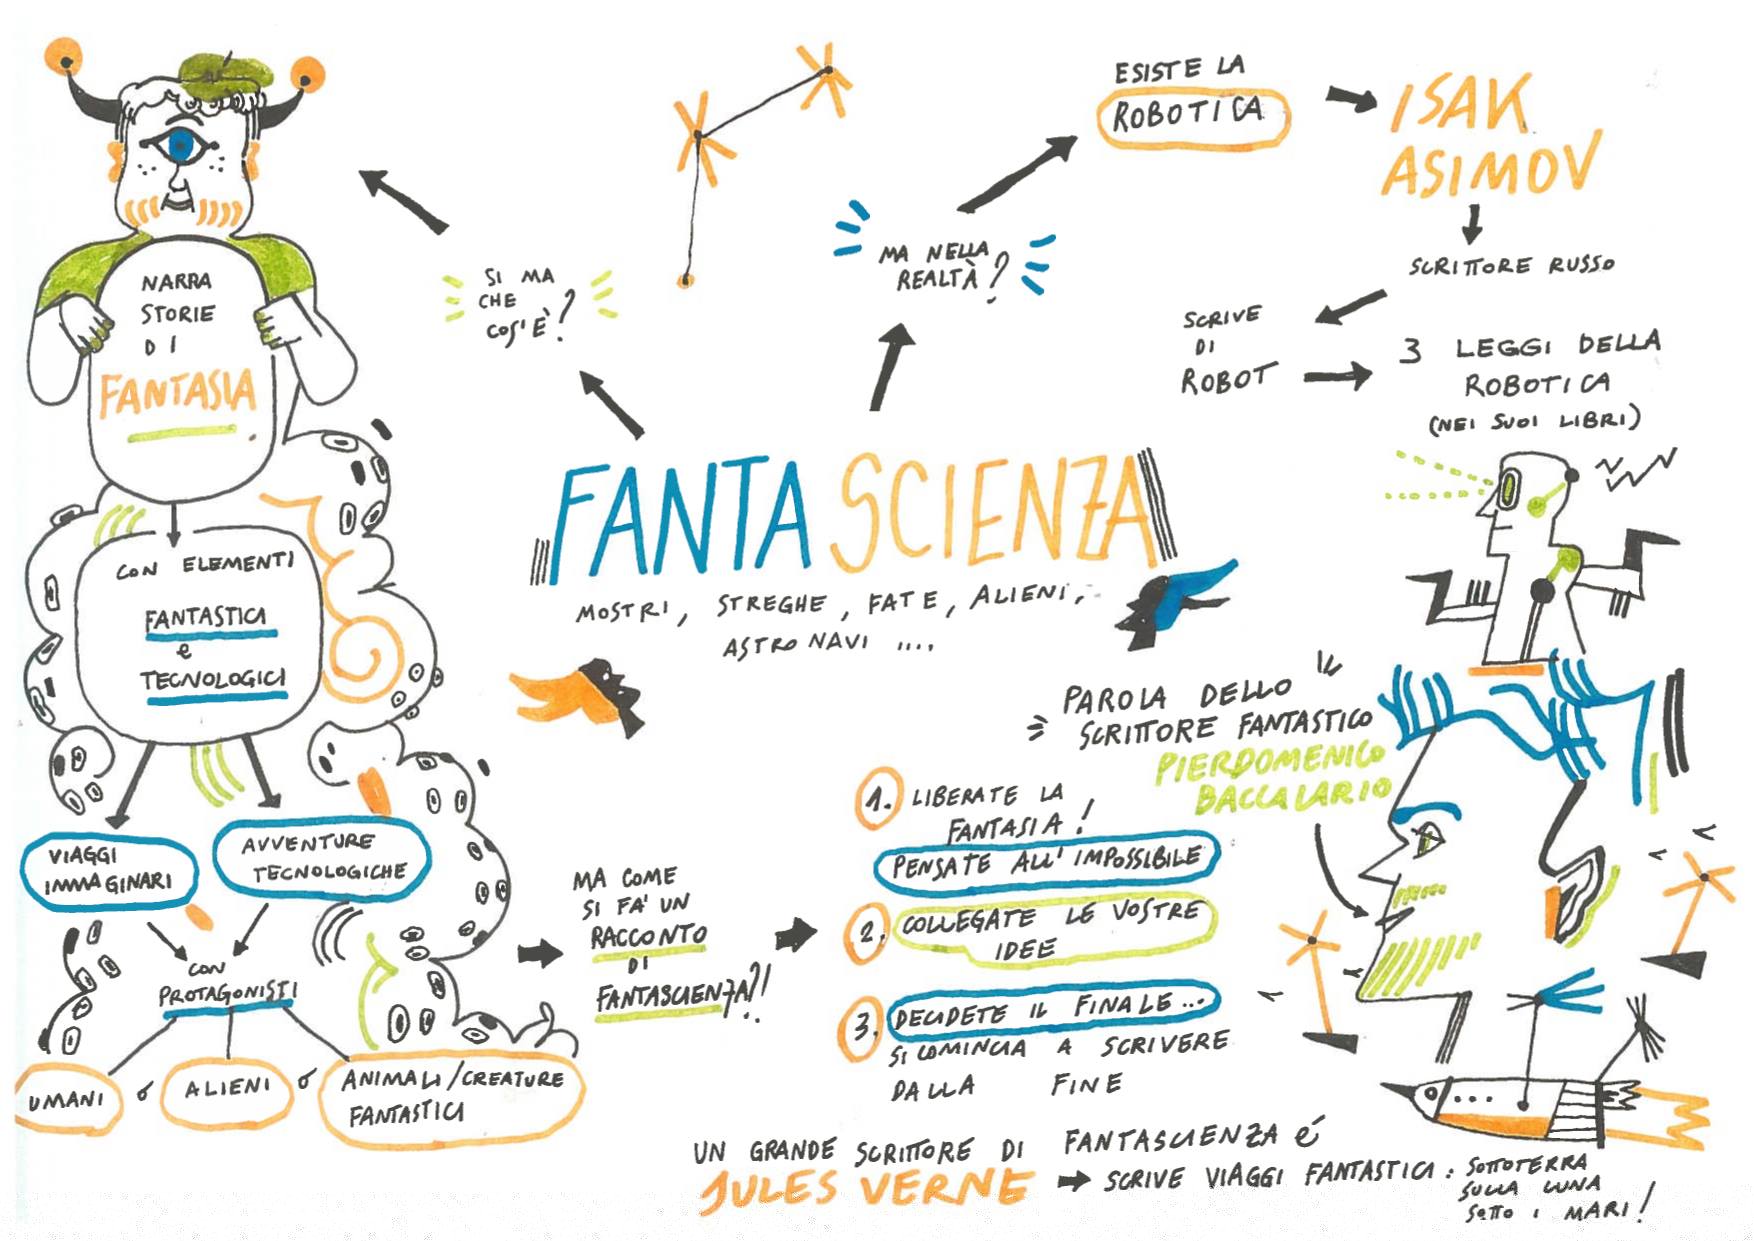 FANTASCIENZA
MOSTRI, STREGHE, FATE, ALIENI,
ASTRONAVI ....
SI MA
CHE
COS'È?
NARRA
STORIE
DI
FANTASIA
CON ELEMENTI
FANTASTICI
e
TECNOLOGICI
VIAGGI
IMMAGINARI
AVVENTURE
TECNOLOGICHE
CON
PROTAGONISTI
UMANI o ALIENI o ANIMALI/CREATURE
FANTASTICI
MA NELLA
REALTÀ?
ESISTE LA
ROBOTICA
ISAK
ASIMOV
SCRITTORE RUSSO
SCRIVE
DI
ROBOT
3 LEGGI DELLA
ROBOTICA
(NEI SUOI LIBRI)
MA COME
SI FA' UN
RACCONTO
DI
FANTASCIENZA?!!
PAROLA DELLO
SCRITTORE FANTASTICO
PIERDOMENICO
BACCALARIO
1. LIBERATE LA
FANTASIA!
PENSATE ALL'IMPOSSIBILE
2. COLLEGATE LE VOSTRE
IDEE
3. DECIDETE IL FINALE...
SI COMINCIA A SCRIVERE
DALLA FINE
UN GRANDE SCRITTORE DI FANTASCIENZA é
JULES VERNE
SCRIVE VIAGGI FANTASTICI: SOTTOTERRA
SULLA LUNA
SOTTO I MARI!